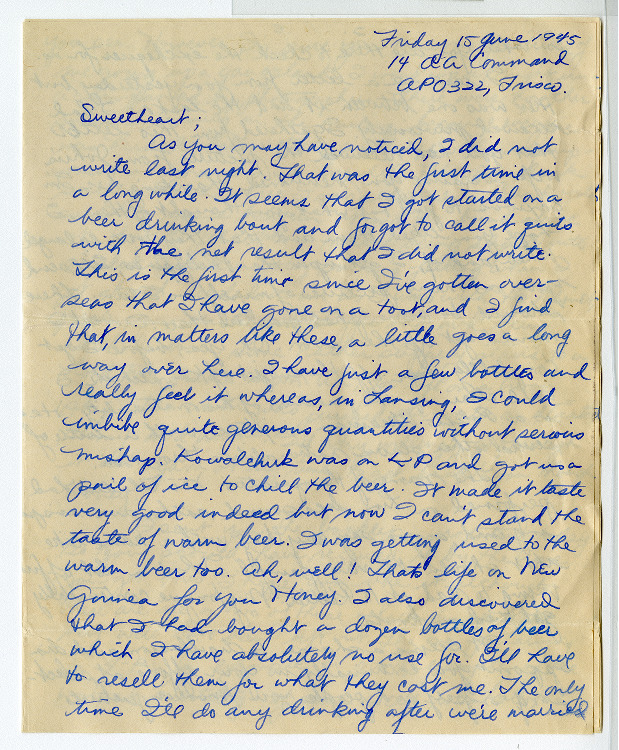 Friday 15 June 1945
14 AA Command
APO322, Frisco.
Sweetheart;
As you may have noticed, I did not
write last night. That was the first time in
a long while. It seems that I got started on a
beer drinking bout and forgot to call it quits
with the net result that I did not write.
This is the first time since I've gotten over-
seas that I have gone on a toot, and I find
that, in matters like these, a little goes a long
way over here. I have just a few bottles and
really feel it whereas, in Lansing, I could
imbibe quite generous quantities without serious
mishap. Kowalchuk was on KP and got us a
pail of ice to chill the beer. It made it taste
very good indeed but now I can't stand the
taste of warm beer. I was getting used to the
warm beer too. Ah, well! Thats life on New
Guinea for you Honey. I also discovered
that I had bought a dozen bottles of beer
which I have absolutely no use for. I'll have
to resell them for what they cost me. The only
time I'll do any drinking after we're married